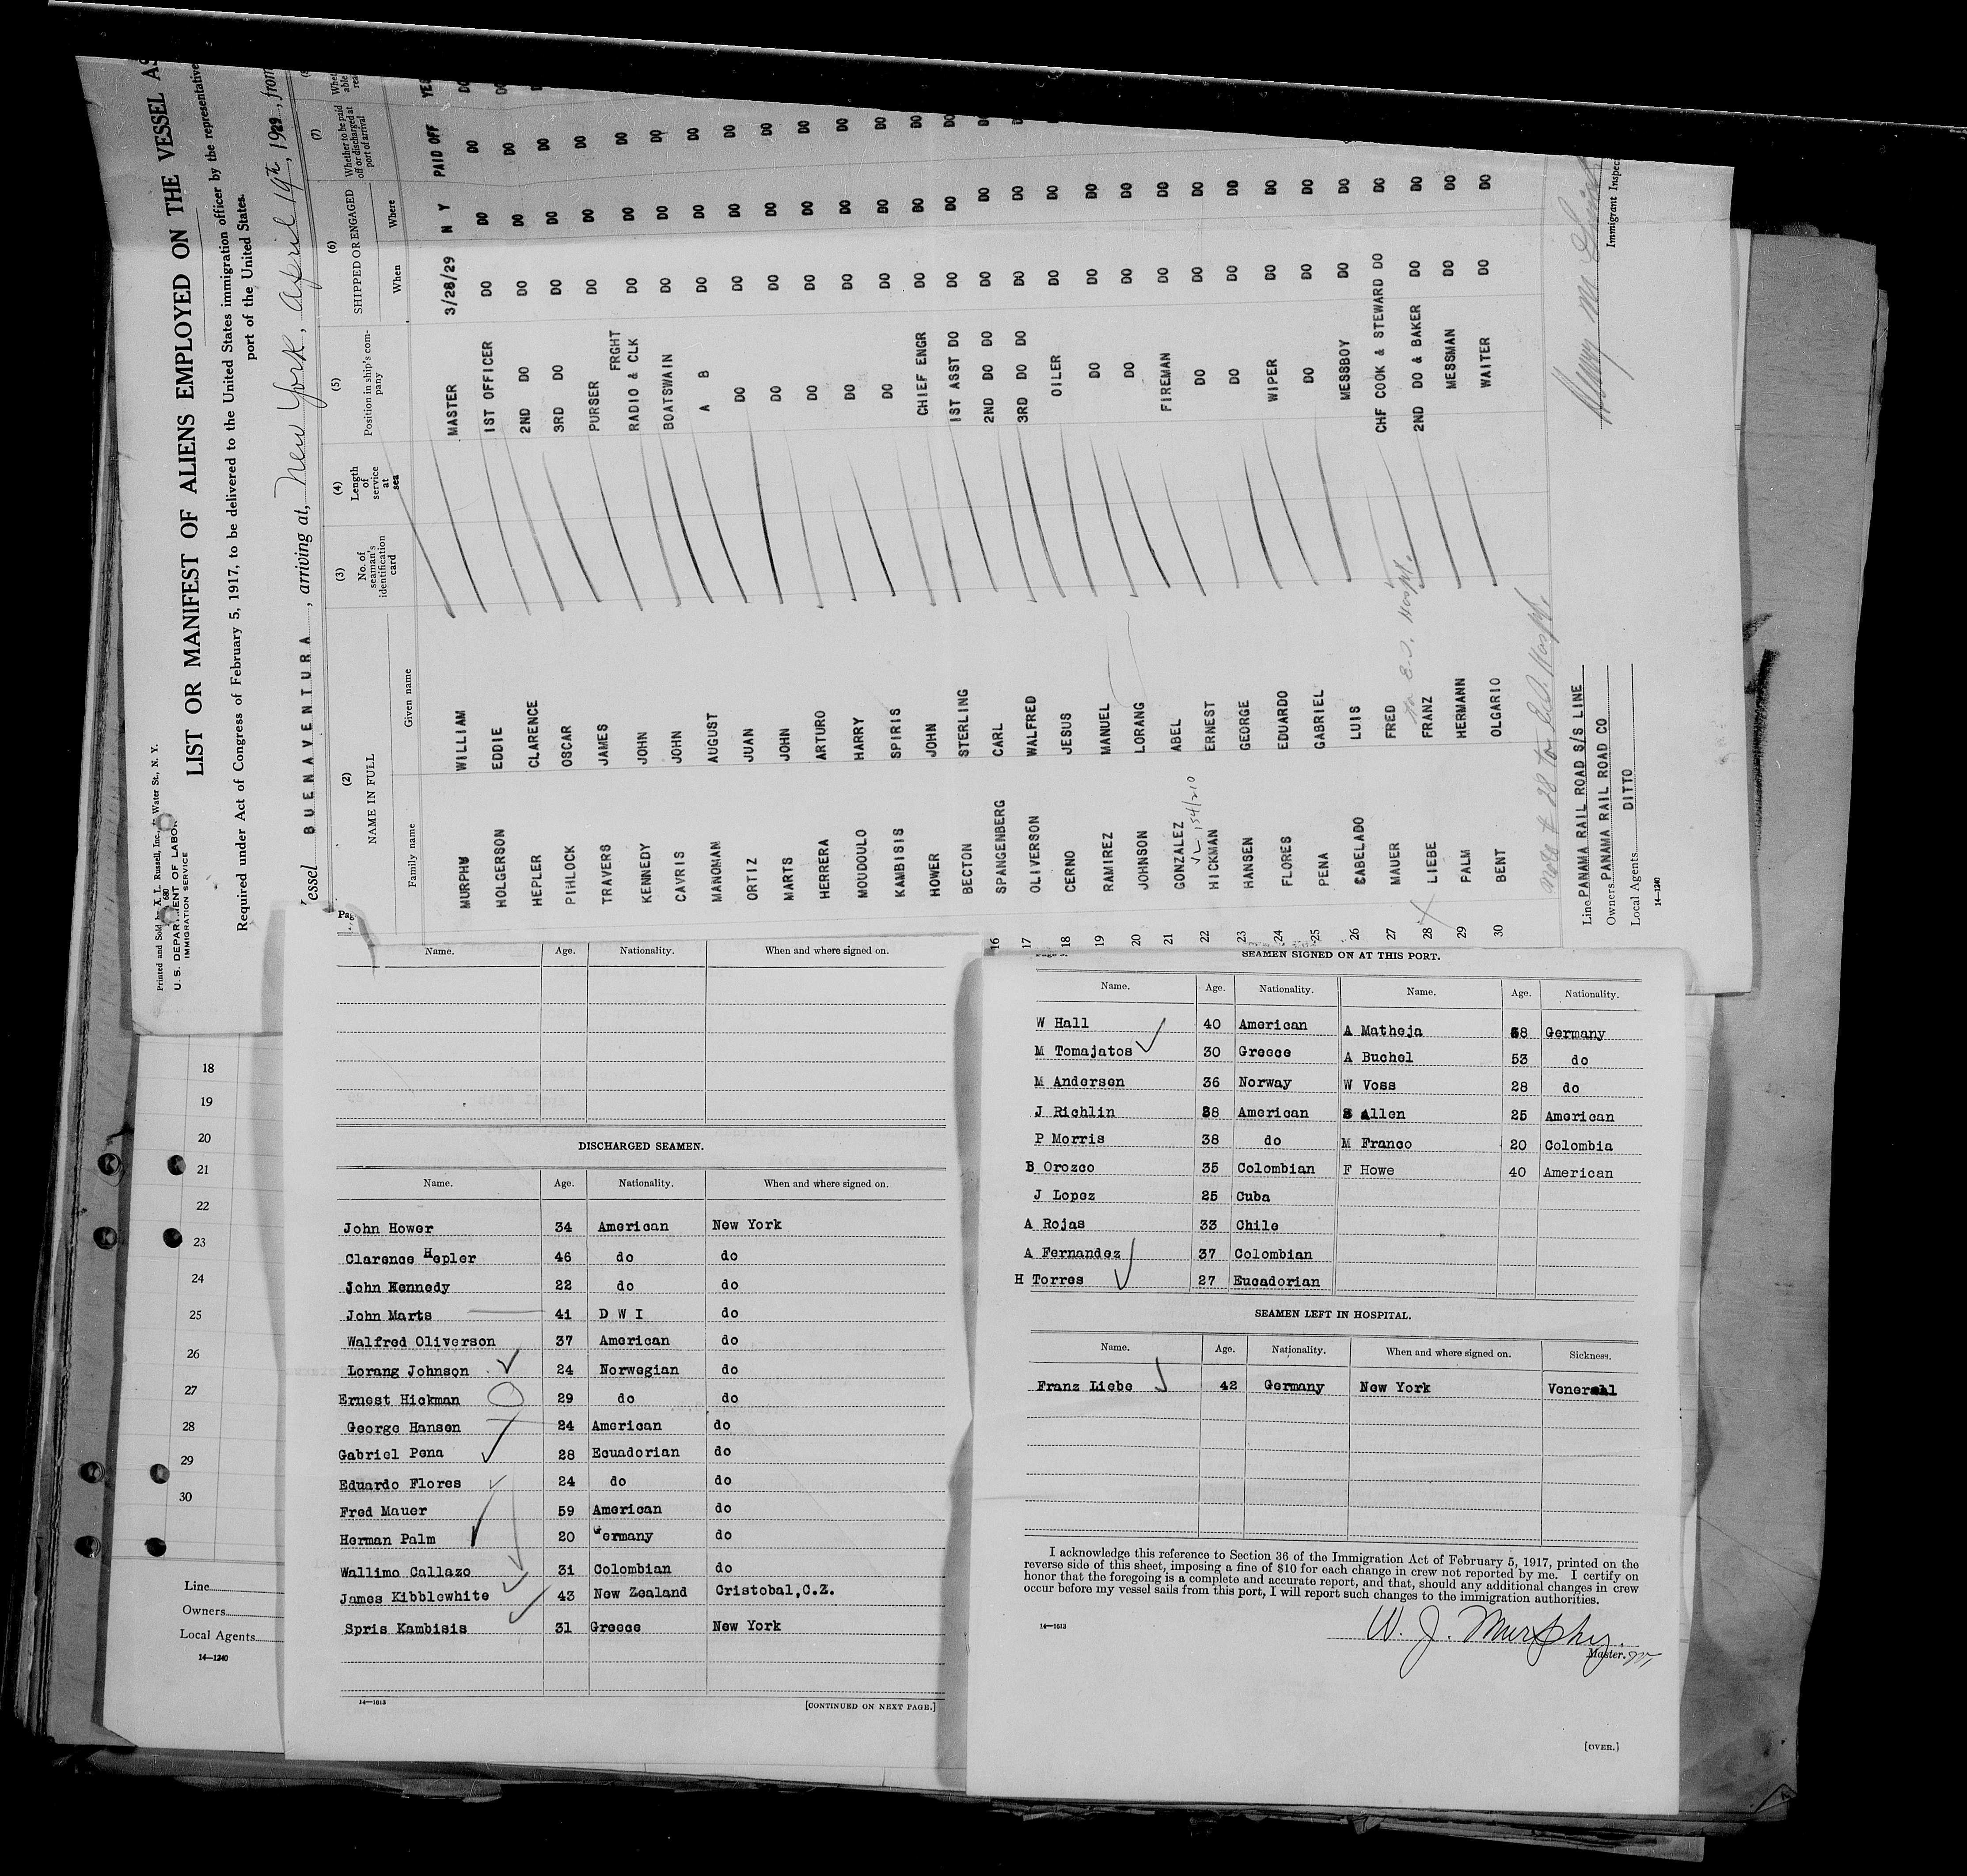 Printed and Sold by A. L. Russell, Inc., Water St., N. Y.
680
U. S. DEPARTMENT OF LABOR
IMMIGRATION SERVICE
LIST OR MANIFEST OF ALIENS EMPLOYED ON THE VESSEL AS
Required under Act of Congress of February 5, 1917, to be delivered to the United States immigration officer by the representative
port of the United States.
essel BUENAVENTURA, arriving at, New York, April 19th, 1929, from
(2) (3) (4) (5) (6) (7)
NAME IN FULL No. of seaman's identification card Length of service at sea Position in ship's company SHIPPED OR ENGAGED Whether to be paid off or discharged at port of arrival
Family name Given name When Where
MURPHY WILLIAM MASTER 3/28/29 N Y PAID OFF YES
HOLGERSON EDDIE 1ST OFFICER DO DO DO DO
HEPLER CLARENCE 2ND DO DO DO DO DO
PIHLOCK OSCAR 3RD DO DO DO DO DO
TRAVERS JAMES PURSER DO DO DO
KENNEDY JOHN RADIO & FRGHT CLK DO DO DO
CAVRIS JOHN BOATSWAIN DO DO DO
MANOMAN AUGUST A B DO DO DO
ORTIZ JUAN DO DO DO DO
MARTS JOHN DO DO DO DO
HERRERA ARTURO DO DO DO DO
MOUDOULO HARRY DO DO DO DO
KAMBISIS SPIRIS DO DO DO DO
HOWER JOHN CHIEF ENGR DO DO DO
BECTON STERLING 1ST ASST DO DO DO DO
16 SPANGENBERG CARL 2ND DO DO DO DO DO
17 OLIVERSON WALFRED 3RD DO DO DO DO DO
18 CERNO JESUS OILER DO DO
19 RAMIREZ MANUEL DO DO DO
20 JOHNSON LORANG DO DO DO
21 GONZALEZ ABEL FIREMAN DO DO
22 HICKMAN ERNEST DO DO DO
23 HANSEN GEORGE DO DO DO
24 FLORES EDUARDO WIPER DO DO
25 PENA GABRIEL DO DO DO
26 CABELADO LUIS MESSBOY DO DO
27 MAUER FRED CHF COOK & STEWARD DO DO
28 LIEBE FRANZ 2ND DO & BAKER DO DO
29 PALM HERMANN MESSMAN DO DO
30 BENT OLGARIO WAITER DO DO
Line PANAMA RAIL ROAD S/S LINE
Owners PANAMA RAIL ROAD CO
Local Agents DITTO
14—1240
Immigrant Inspec
18
19
20
21
22
23
24
25
26
27
28
29
30
Line
Owners
Local Agents
14—1240
Pag
Name. Age. Nationality. When and where signed on.
DISCHARGED SEAMEN.
Name. Age. Nationality. When and where signed on.
John Hower 34 American New York
Clarence Hepler 46 do do
John Kennedy 22 do do
John Marts 41 D W I do
Walfred Oliverson 37 American do
Lorang Johnson 24 Norwegian do
Ernest Hickman 29 do do
George Hansen 24 American do
Gabriel Pena 28 Ecuadorian do
Eduardo Flores 24 do do
Fred Mauer 59 American do
Herman Palm 20 Germany do
Wallimo Callazo 31 Colombian do
James Kibblewhite 43 New Zealand Cristobal,C.Z.
Spris Kambisis 31 Greece New York
14—1613
[CONTINUED ON NEXT PAGE.]
SEAMEN SIGNED ON AT THIS PORT.
Name. Age. Nationality. Name. Age. Nationality.
W Hall 40 American A Matheja 38 Germany
M Tomajatos 30 Greece A Buchel 53 do
M Andersen 36 Norway W Voss 28 do
J Richlin 38 American S Allen 25 American
P Morris 38 do M Franco 20 Colombia
B Orozco 35 Colombian F Howe 40 American
J Lopez 25 Cuba
A Rojas 33 Chile
A Fernandez 37 Colombian
H Torres 27 Eucadorian
SEAMEN LEFT IN HOSPITAL.
Name. Age. Nationality. When and where signed on. Sickness.
Franz Liebe 42 Germany New York Veneral
I acknowledge this reference to Section 36 of the Immigration Act of February 5, 1917, printed on the
reverse side of this sheet, imposing a fine of $10 for each change in crew not reported by me. I certify on
honor that the foregoing is a complete and accurate report, and that, should any additional changes in crew
occur before my vessel sails from this port, I will report such changes to the immigration authorities.
14—1613
W. J. Murphy.
Master.
[OVER.]